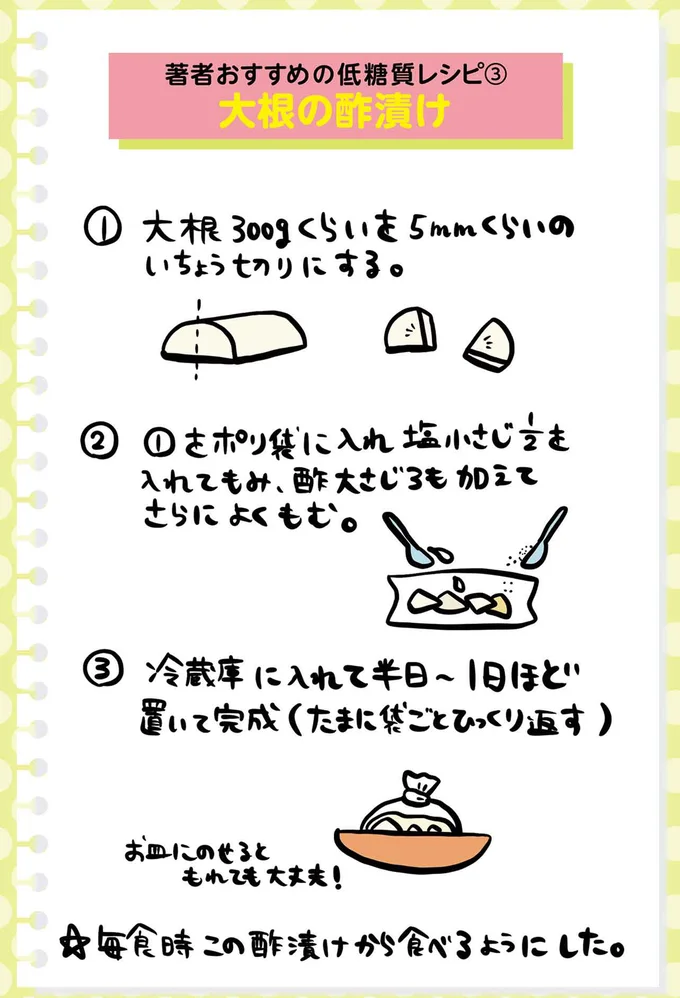 著者おすすめの低糖質レシピ③
大根の酢漬け
① 大根300gくらいを5mmくらいの
いちょう切りにする。
② ①をポリ袋に入れ塩小さじ1/2を
入れてもみ、酢大さじ3も加えて
さらによくもむ。
③ 冷蔵庫に入れて半日~1日ほど
置いて完成(たまに袋ごとひっくり返す)
お皿にのせると
もれても大丈夫!
☆毎食時この酢漬けから食べるようにした。